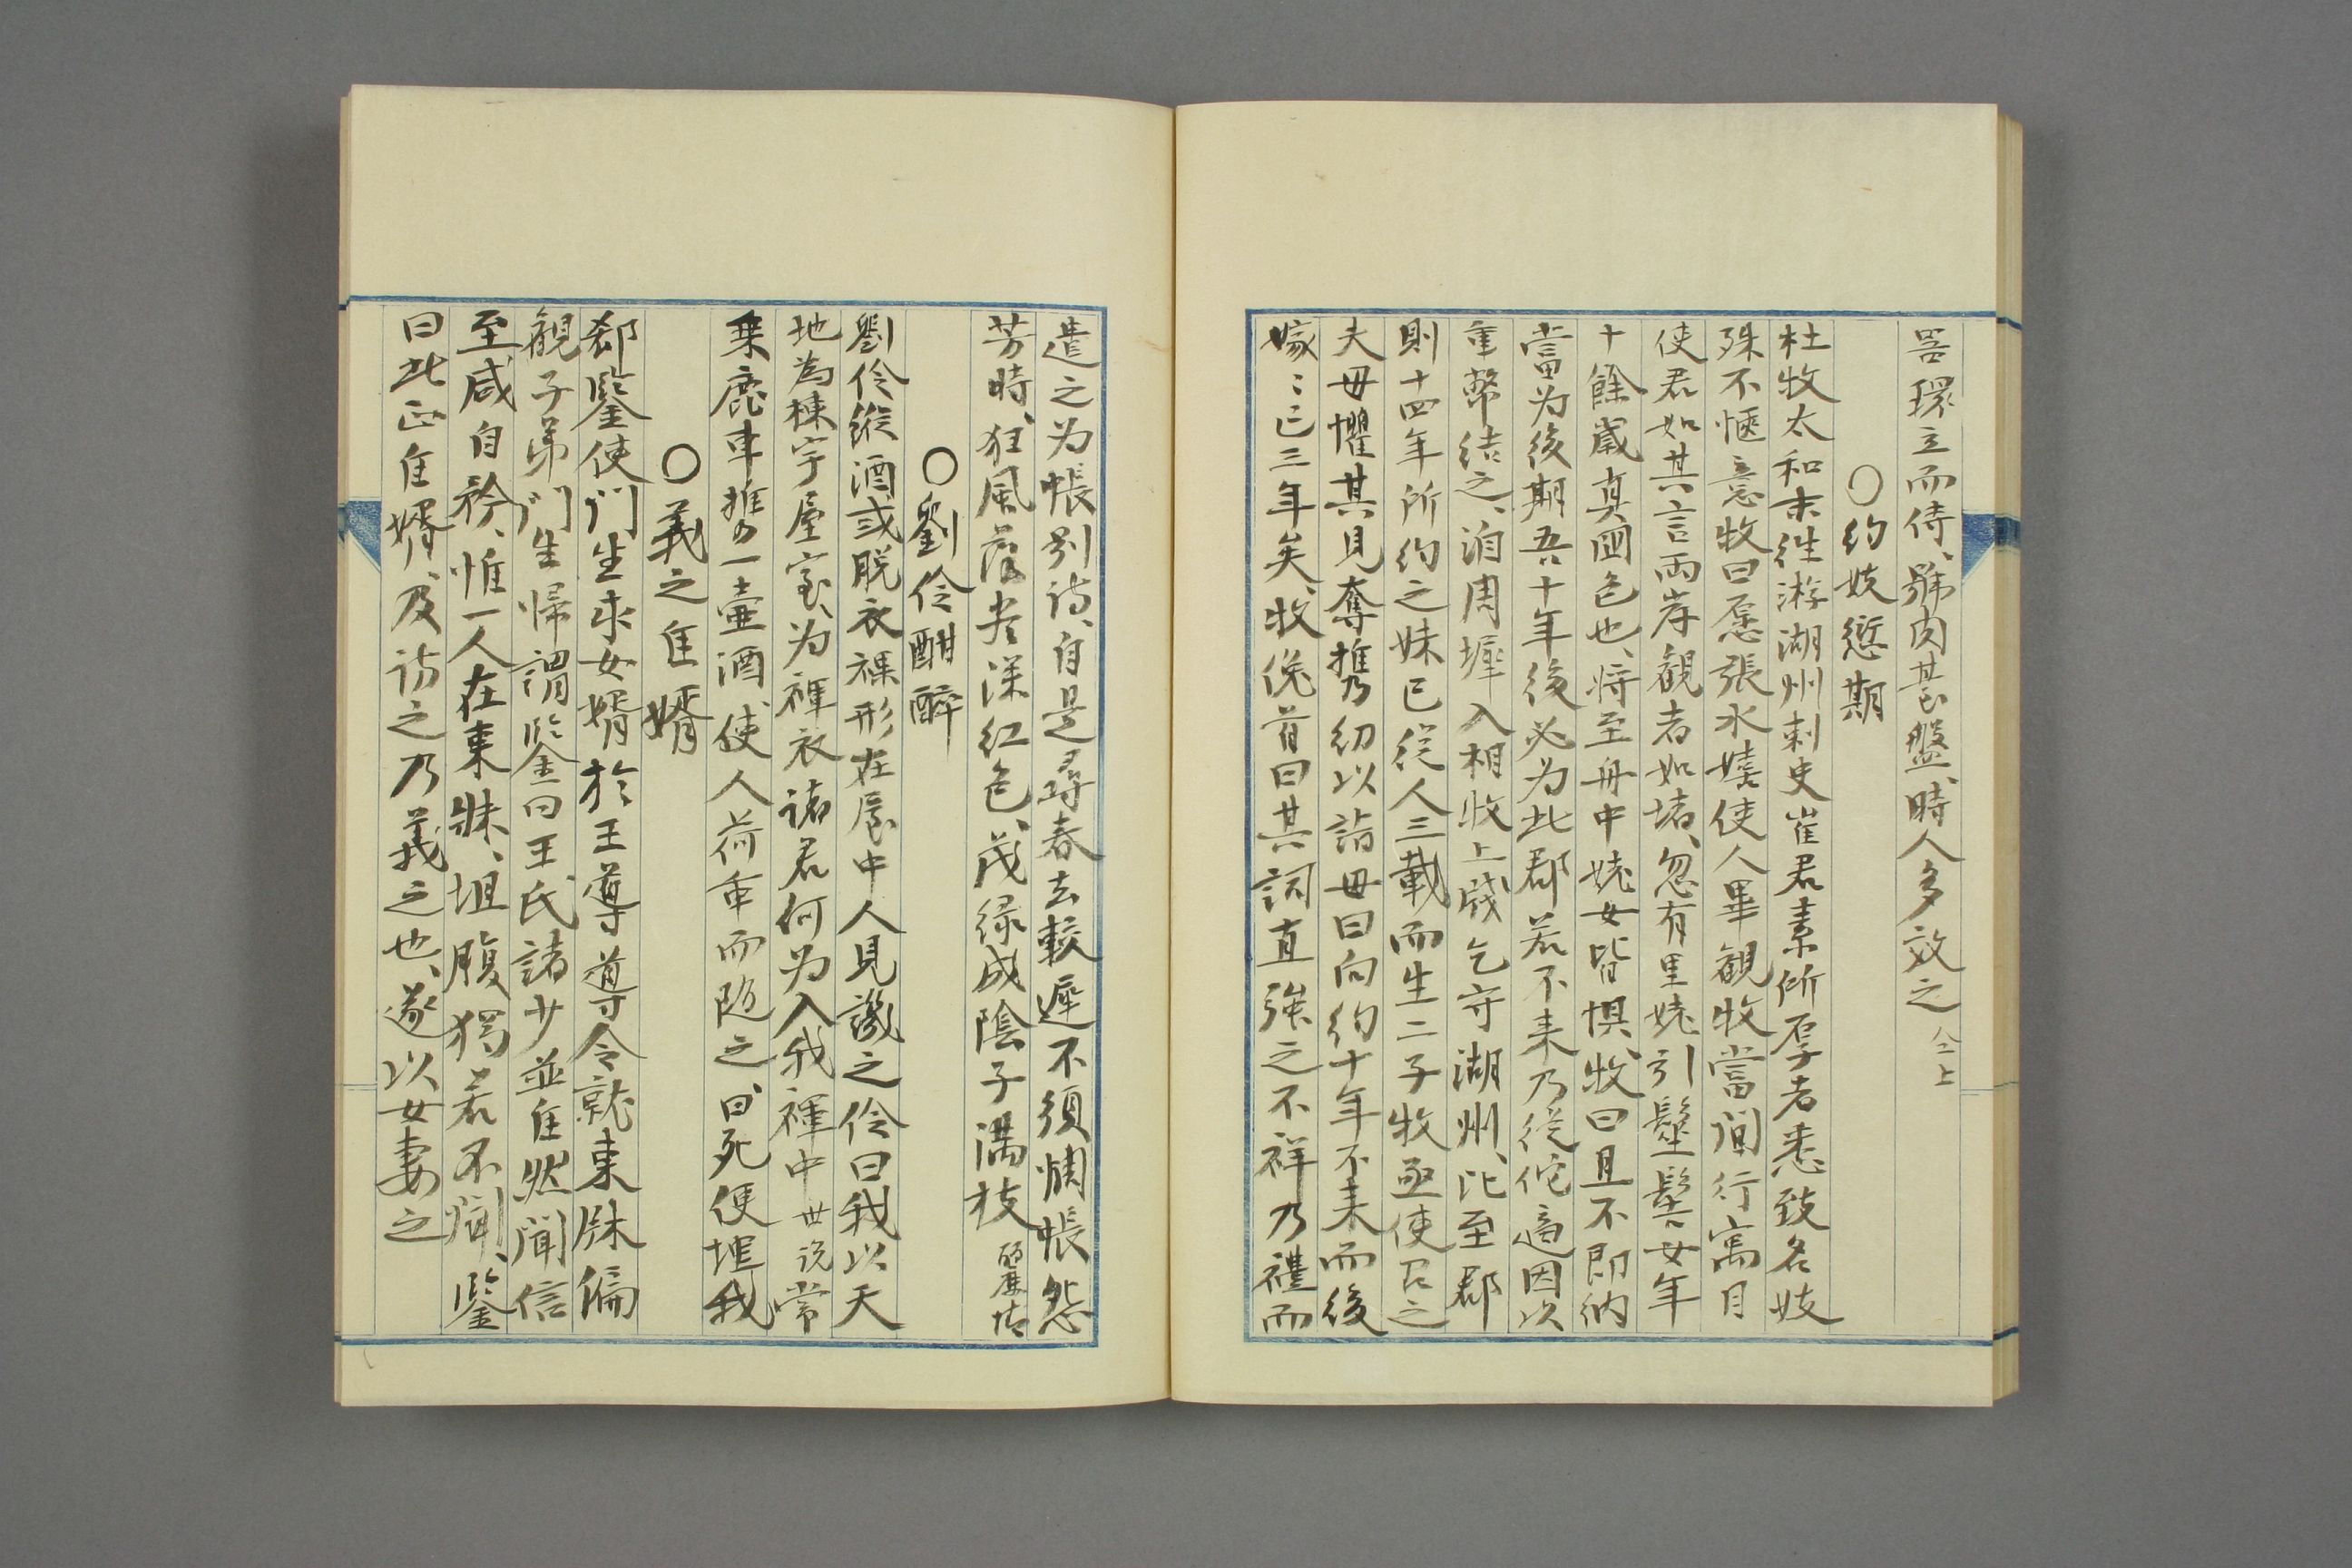 器環立而侍、號肉甚盤、時人多效之 仝上
○約妓愆期
杜牧太和末往游湖州刺史崔君素所厚者悉致名妓
殊不愜意牧曰愿張水嬉使人畢觀牧當间行寓目
使君如其言兩岸觀者如堵、忽有里姥引髽髻女年
十餘歲真國色也、将至舟中姥女皆惧、牧曰且不即納
當为後期吾十年後必为此郡若不来乃從佗適因以
重幣结之、洎周墀入相牧上牋乞守湖州、比至郡
則十四年所约之妹已從人三載而生二子牧亟使召之
夫母懼其見奪携幼以詣母曰向约十年不来而後
嫁〻已三年矣、牧俛首曰其詞直强之不祥乃禮而
遣之为悵别诗、自是尋春去較遲不須惆悵怨
芳時、狂風落尽深红色、茂绿成陰子满枝 
○劉伶酣醉
劉伶縱酒或脱衣裸形在屋中人見譏之伶曰我以天
地為棟宇屋室、为褌衣諸君何为入我褌中 世说 常
乗鹿車携一壷酒、使人荷臿而随之、曰死便埋我
○羲之佳婿
郗鑒使门生求女婿於王導導令就東牀徧
觀子弟门生帰謂鑒曰王氏諸少並佳然聞信
至咸自矜、惟一人在東牀、坦腹獨若不聞、鑒
曰此正佳婿、及访之乃羲之也、遂以女妻之